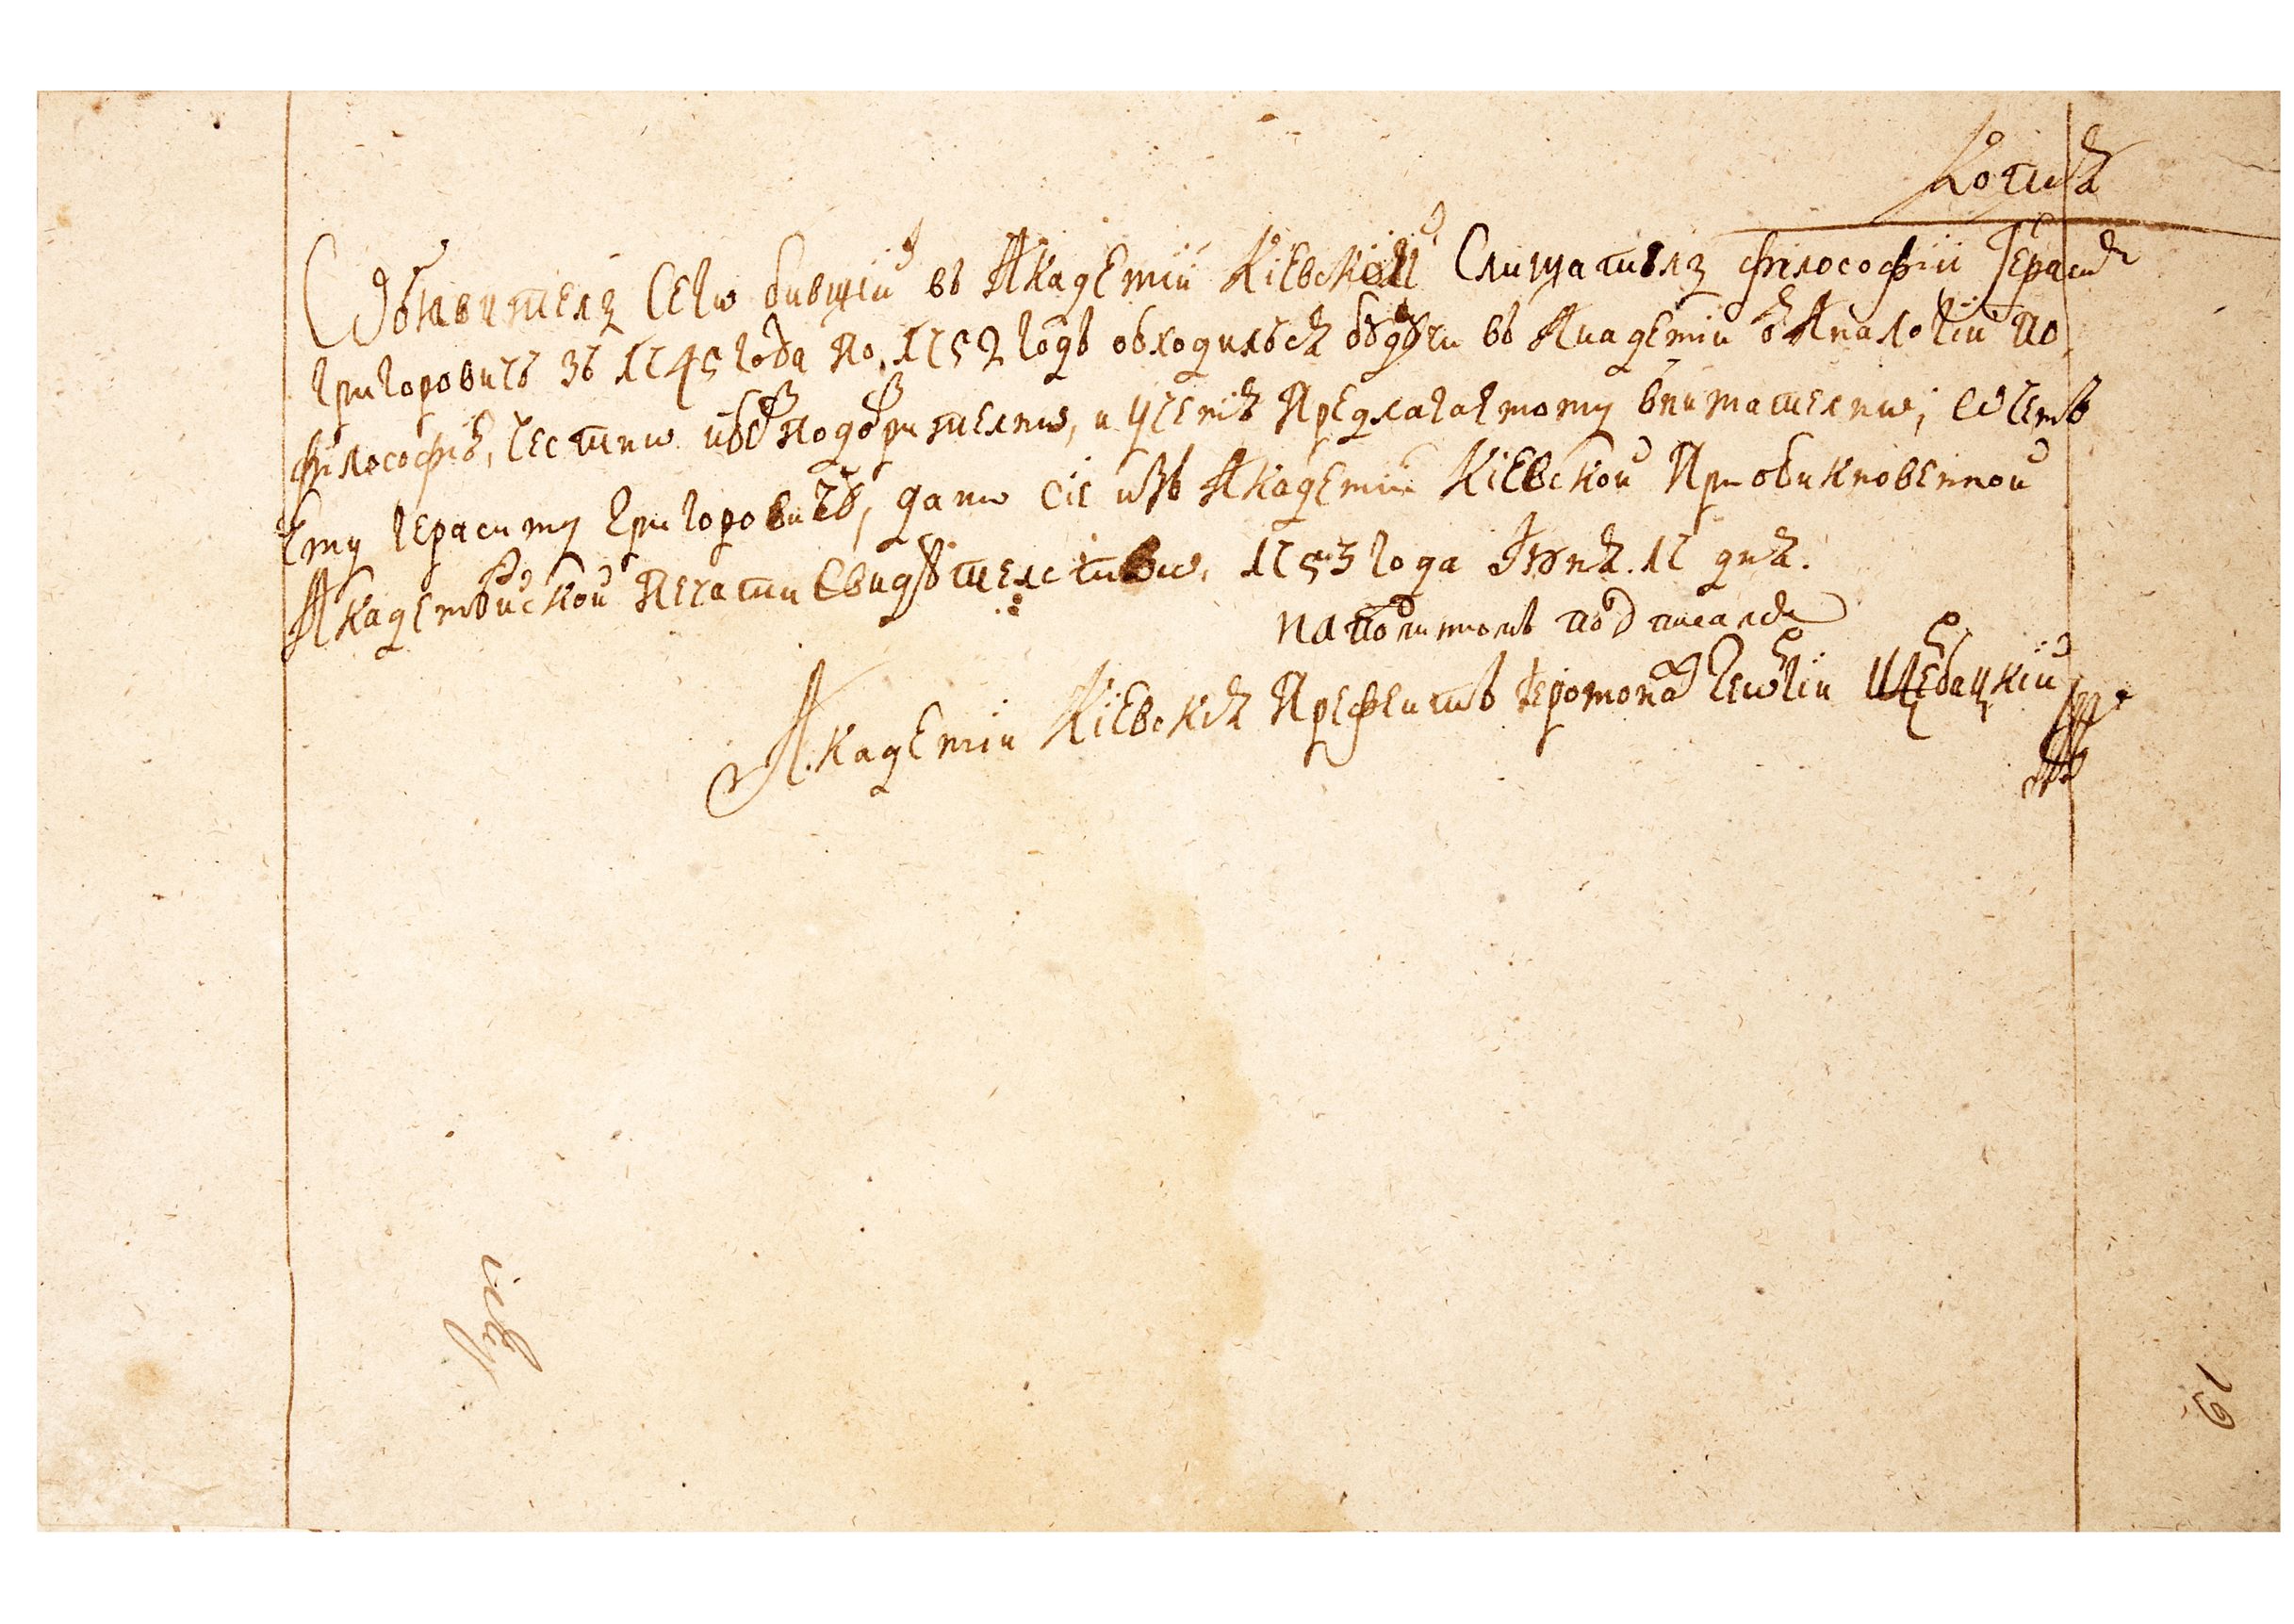 Копия
Ѡбявителъ сегѡ бившій въ Академіи Кіевской Слишателъ философіи Герасим
Григоровичъ зъ 1745 года по 1752 годъ обходился будучи въ Академіи ѿ Аналогіи до
философіи, честнѡ и неподозрителнѡ, и ученія предлагаемому внимателнѡ, ѡ чемъ
ему Герасиму Григоровичу, данѡ сіе изъ Академіи Кіевской при обикновенной
Академической печати свидѣтелствѡ, 1753 года Іюня 17 дня.
на подлинномъ подписался
Академіи Кіевскія Префектъ Іеромонах Геѡргій Щербацкій
19